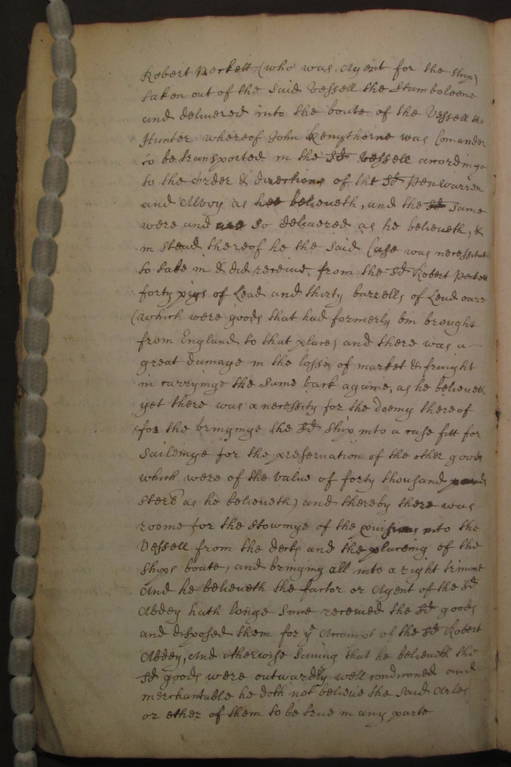 Robert Peckett (who was Agent for the ship)
taken out of the said vessell the Stamboleene
and delivered into the boate of the Vessell the
Hunter whereof John Kenythorne was Comander
to be transported in the sd vessell accordinge
to the order & directions of the sd Penwarren
and Alboy as hee believeth, and the same
were and so delivered as he believeth, &
in stead thereof he the said Case was necessitated
to take in & did receive from the sd Robert Peckett
forty piggs of Lead and thirty barrells of Lead oare
(which were goods that had formerly bin brought
from England to that place) and there was a
great damage in the losse of market & fraught
in carrynge the same back againe, as he believeth
yet there was a necessity for the doeing thereof
for the bringinge the sd ship into a case fitt for
saileinge for the preservation of the other goods
which were of the value of forty thousand
sterl as he believeth) and thereby there was
roome for the stowinge of the into the
Vessell from the decks and the placeing of the
ships boate, and bringing all into a right trimme
And he believeth the factor or Agent of the sd
Abdey hath longe since received the sd goods
and disposed them for ye Accompt of the sd Robert
Abdey, And otherwise saving that he believeth the
sd goods were outwardly well conditioned and
merchantable he doth not believe the said Arles
or ether of them to be true in any parte